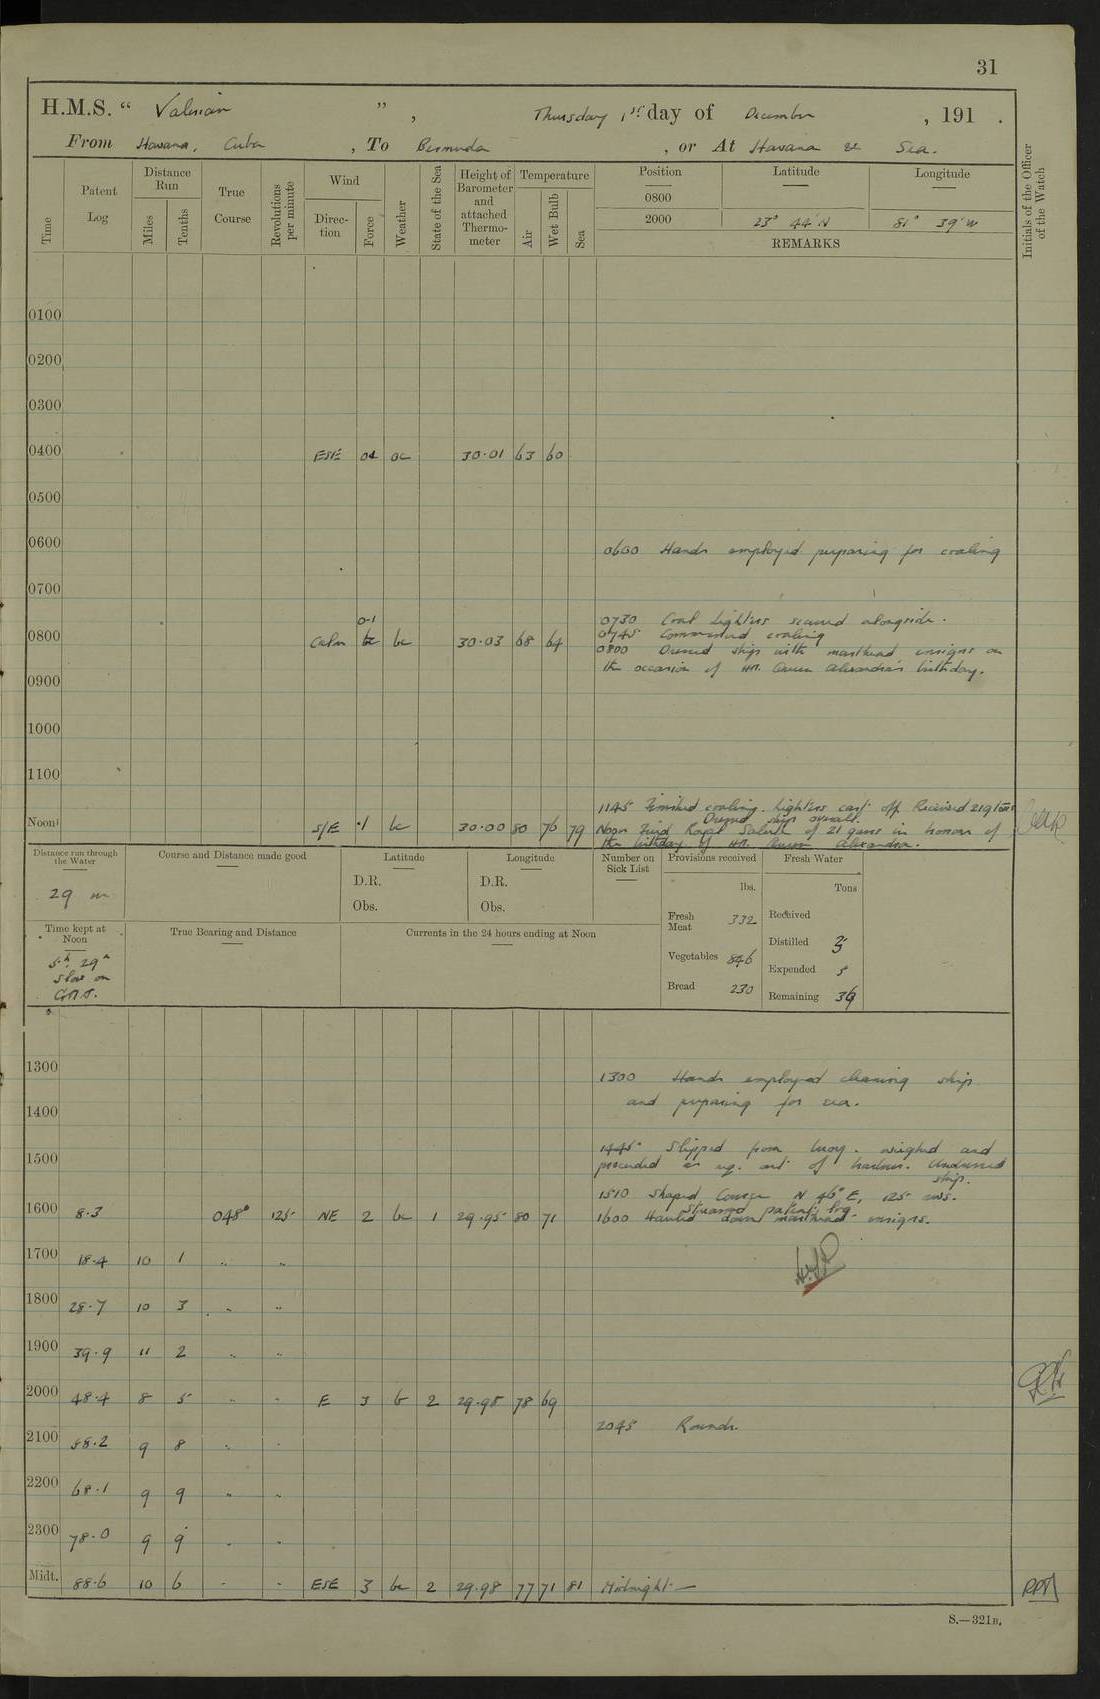 31
H.M.S. " Valerian ", Thursday 1st day of December, 191 .
From Havana, Cuba, To Bermuda, or At Havana & Sea.
Time
Patent Log
Distance Run
Miles
Tenths
True Course
Revolutions per minute
Wind
Direction
Force
Weather
State of the Sea
Height of Barometer and attached Thermometer
Temperature
Air
Wet Bulb
Sea
Position
Latitude
Longitude
Initials of the Officer of the Watch
0800
2000 23° 44' N 81° 39' W
REMARKS
0100
0200
0300
0400 ESE 30·01 63 60
0500
0600
0600 Hands employed preparing for coaling
0700
0730 Coal lighters secured alongside.
0-1
0800 Calm bc 30·03 68 64
0745 Commenced coaling
0800 Dressed ship with masthead ensigns on
the occasion of HM. Queen Alexandra's birthday.
0900
1000
1100
1145 Finished coaling. Lighters cast off. Received 219 tons
Dressed ship overall.
Noon S/E ·1 bc 30·00 80 76 79 Noon Fired Royal Salute of 21 guns in honour of
the birthday of HM. Queen Alexandra.
Distance run through the Water
29 m
Course and Distance made good
Latitude
D.R.
Obs.
Longitude
D.R.
Obs.
Number on Sick List
Provisions received
lbs.
Fresh Meat 332
Vegetables 846
Bread 230
Fresh Water
Tons
Received
Distilled
Expended 5
Remaining
Time kept at Noon
5h. 29m
slow on
G.M.T.
True Bearing and Distance
Currents in the 24 hours ending at Noon
1300
1300 Hands employed cleaning ship
and preparing for sea.
1400
1445 Slipped from buoy. weighed and
1500
proceeded as req. out of harbour. Undressed
ship.
1510 Shaped Course N 46° E, 125 revs.
Streamed patent log
1600 8·3 048° 125 NE 2 bc 1 29·95 80 71 1600 Hauled down masthead ensigns.
1700 18·4 10 1 " "
1800 28·7 10 3 " "
1900 39·9 11 2 " "
2000 48·4 8 5 " " E 3 b 2 29·98 78 69
2045 Rounds.
2100 58·2 9 8 " "
2200 68·1 9 9 " "
2300 78·0 9 9 " "
Midt. 88·6 10 6 " " ESE 3 bc 2 29·98 77 71 81 Midnight —
S.—321B.